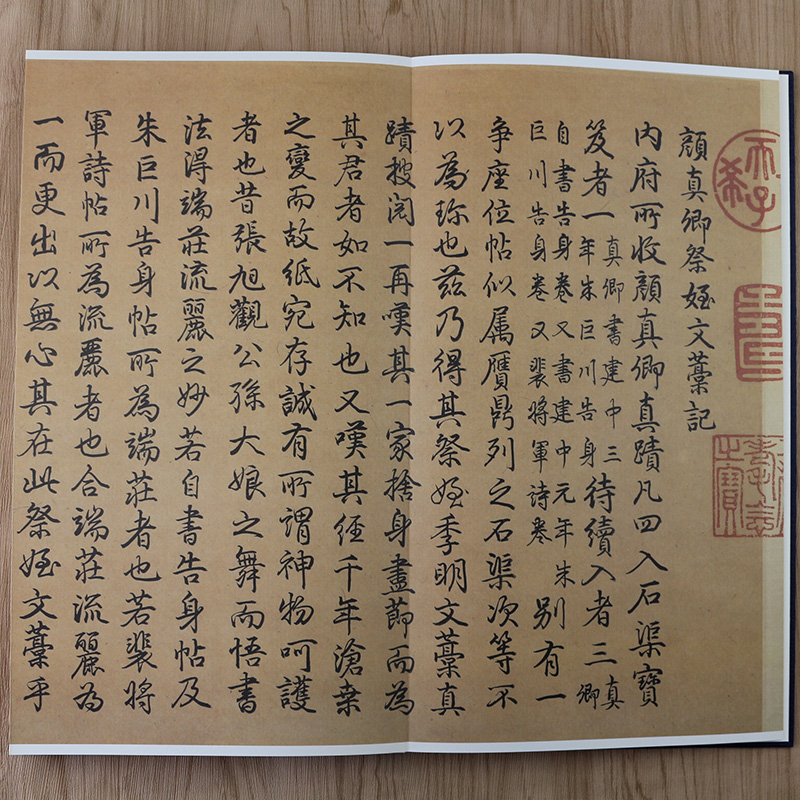 顏真卿祭姪文藁記
內府所收顏真卿真蹟凡四入石渠寶
笈者一真卿書建中三年朱巨川告身待續入者三真卿
自書告身卷又書建中元年朱巨川告身卷又裴將軍詩卷別有一
爭座位帖似属贋鼎列之石渠次等不
以為珎也茲乃得其祭姪季明文藁真
蹟搜閱一再嘆其一家捨身盡節而為
其君者如不知也又嘆其經千年滄桒
之變而故紙宛存誠有所謂神物呵護
者也昔張旭觀公孫大娘之舞而悟書
法得端莊流麗之妙若自書告身帖及
朱巨川告身帖所為端莊者也若裴將
軍詩帖所為流麗者也合端莊流麗為
一而更出以無心其在此祭姪文藁乎